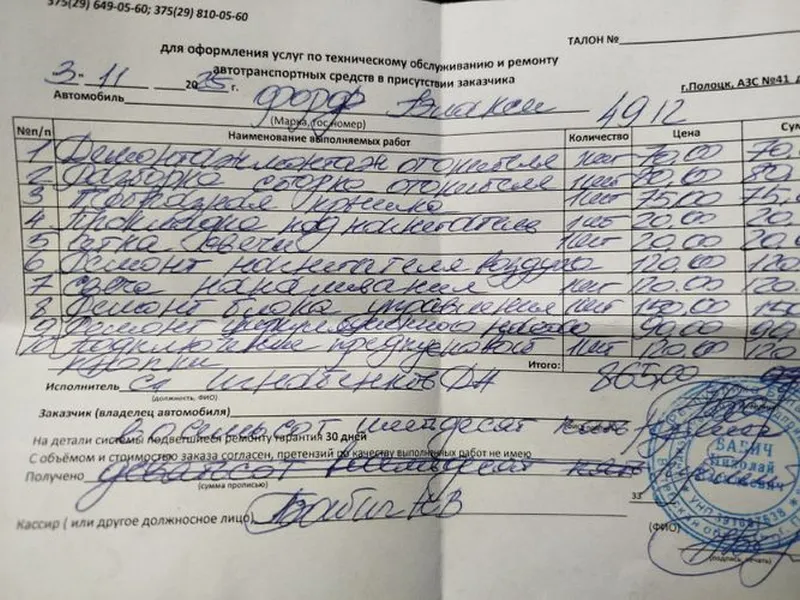 375(29) 649-05-60; 375(29) 810-05-60
ТАЛОН №
для оформления услуг по техническому обслуживанию и ремонту
автотранспортных средств в присутствии заказчика
3. 11 2025 г.
г.Полоцк, АЗС №41
Автомобиль форд 4912
(Марка, гос.номер)
№п/п Наименование выполняемых работ Количество Цена Сум
1 Демонтаж монтаж отопителя 1шт 70,00 70.
2 Разборка сборка отопителя 1шт 80,00 80,
3 камера 1шт 75,00 75,
4 Прокладка под нагнетатель 1шт 20,00 20.
5 Сетка свечи 1шт 20,00 20,
6 Ремонт нагнетателя воздуха 120,00 120
7 Свеча накаливания 1шт 120.00 120
8 Ремонт блока управления 1шт 150,00 150
9 Ремонт циркуляционного насоса 90,00 90
10 Подключение предпусковой 1шт 120.00 120
кнопки Итого: 865,00
Исполнитель
(должность, ФИО)
Заказчик (владелец автомобиля)
восемьсот шестдесят пять
На детали системы подвегшиеся ремонту гарантия 30 дней
С объёмом и стоимостью заказа согласен, претензий по качеству выполненных работ не имею
Получено
(сумма прописью)
33
Кассир ( или другое должностное лицо) Бабич НВ
(ФИО)
(подпись, печать)
БАБИЧ
Николай